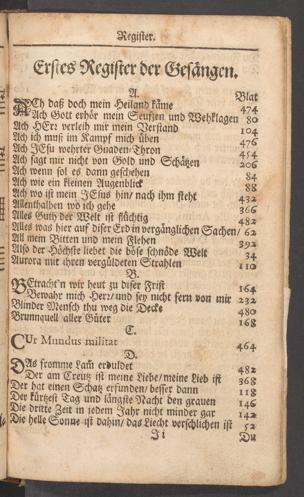 Register.
Erstes Register der Gesängen.
A.
Blat
ACh daß doch mein Heiland käme 474
Ach Gott erhör mein Seufzen und Wehklagen 80
Ach HErr verleih mir mein Verstand 104
Ach ich muß im Kampf mich üben 476
Ach JEsu wehrter Gnaden-Thron 454
Ach sagt mir nicht von Gold und Schätzen 206
Ach wenn sol es dann geschehen 84
Ach wie ein kleinen Augenblick 88
Ach wo ist mein JEsus hin/ nach ihm steht 432
Allenthalben wo ich gehe 366
Alles Guth der Welt ist flüchtig 482
Alles was hier auf diser Erd in vergänglichen Sachen/ 62
All mein Bitten und mein Flehen 392
Also der Höchste liebet die böse schnöde Welt 34
Aurora mit ihren vergüldeten Strahlen 110
B.
BEtracht'n wir heut zu diser Frist 164
Bewahr mich Herr/ und sey nicht fern von mir 232
Blinder Mensch thu weg die Decke 480
Brunnquell aller Güter 168
C.
CUr Mundus militat 464
D.
DAs fromme Lam̃ erduldet 482
Der am Creutz ist meine Liebe/ meine Lieb ist 368
Der hat einen Schatz erfunden/ besser dann 118
Der kürtzest Tag und längste Nacht den grauen 146
Die dritte Zeit in jedem Jahr nicht minder gar 142
Die helle Sonne ist dahin/ das Liecht verschlichen ist 52
Ii Du